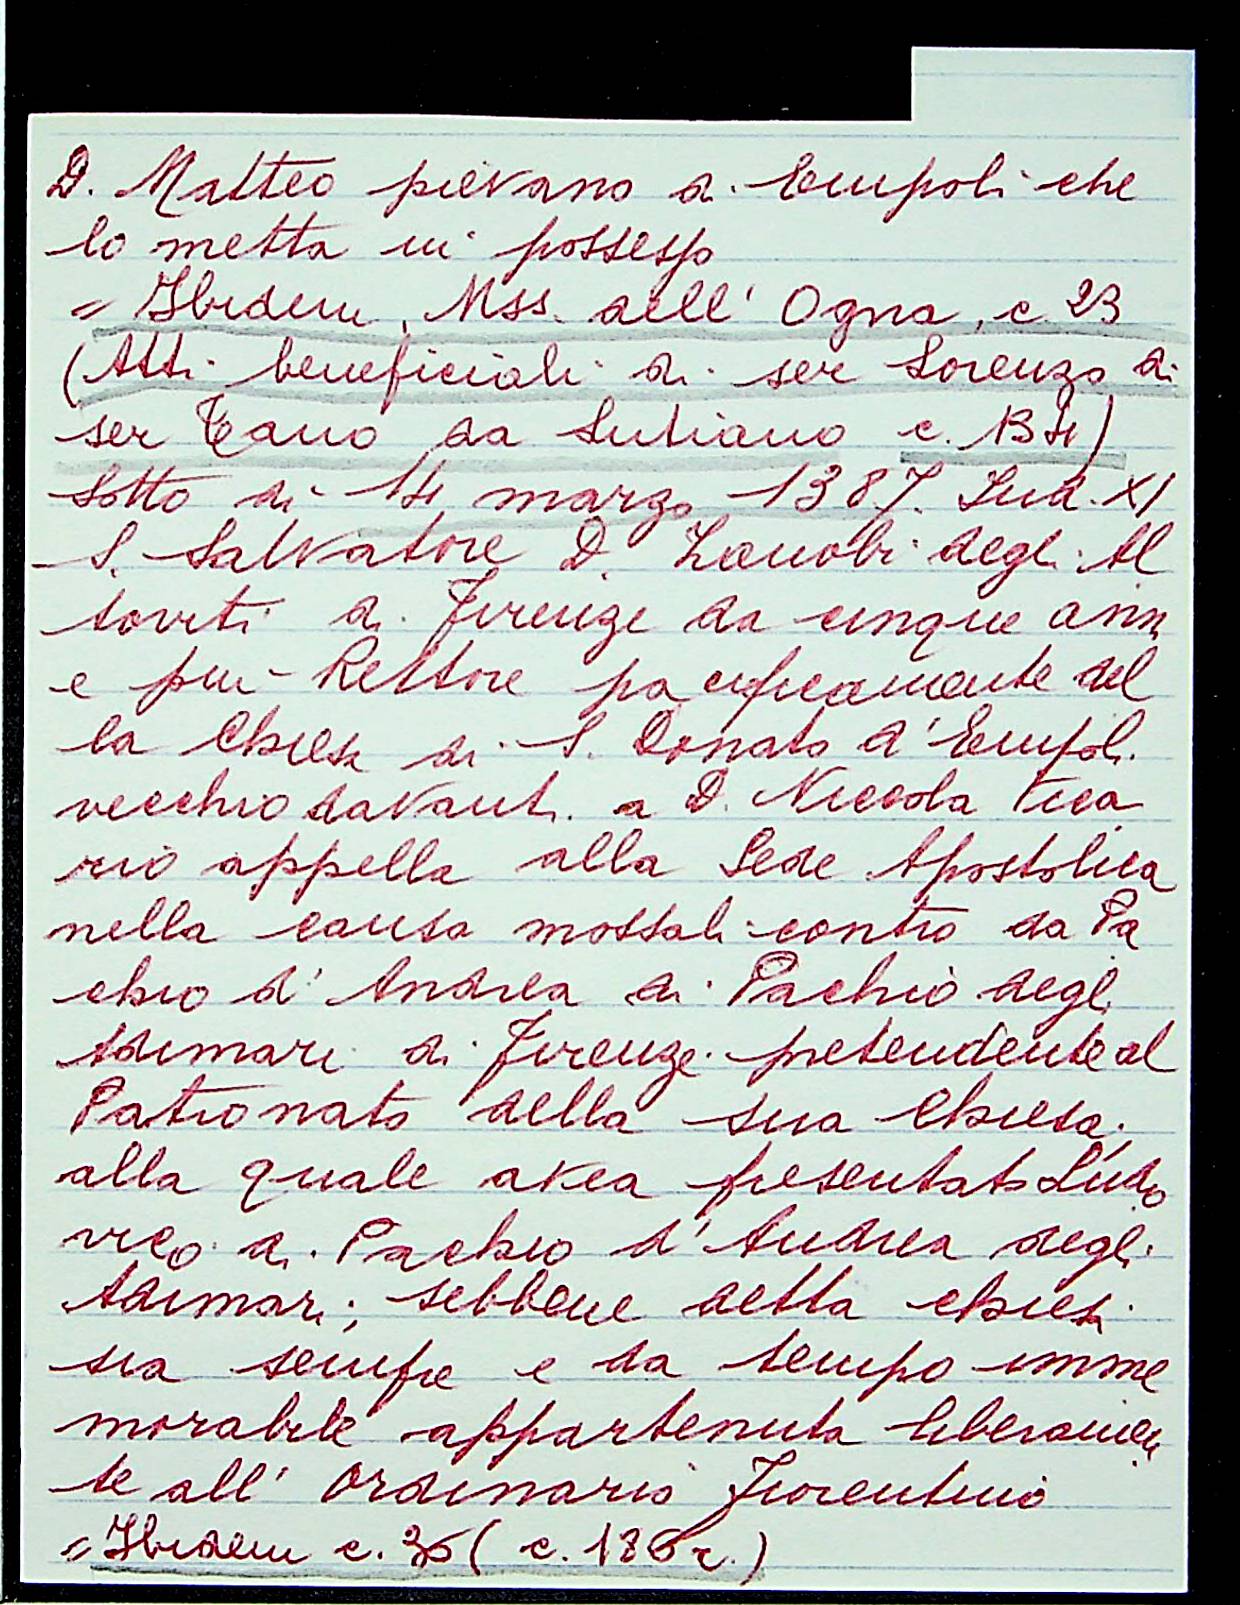 D. Matteo pievano di Empoli che
lo metta in possesso
= Ibidem, Mss. dell' Ogna, c. 23
(Atti beneficiali di ser Lorenzo di
ser Tano da Lutiano c. 134)
Sotto di 14 marzo 1387. Ind. XI
S. Salvatore D. Zanobi degli Al
toviti di Firenze da cinque anni
e più Rettore pacificamente del
la Chiesa di S. Donato d'Empoli
vecchio davanti a D. Niccola Vica
rio appella alla Sede Apostolica
nella causa mossali contro da Pa
chio d'Andrea di Pachio degli
Adimari di Firenze pretendente al
Patronato della sua Chiesa,
alla quale avea presentato Ludo
vico di Pachio d'Andrea degli
Adimari; sebbene detta chiesa
sia sempre e da tempo imme
morabile appartenuta liberamen
te all' Ordinario Fiorentino
= Ibidem c. (c. 136 r.)